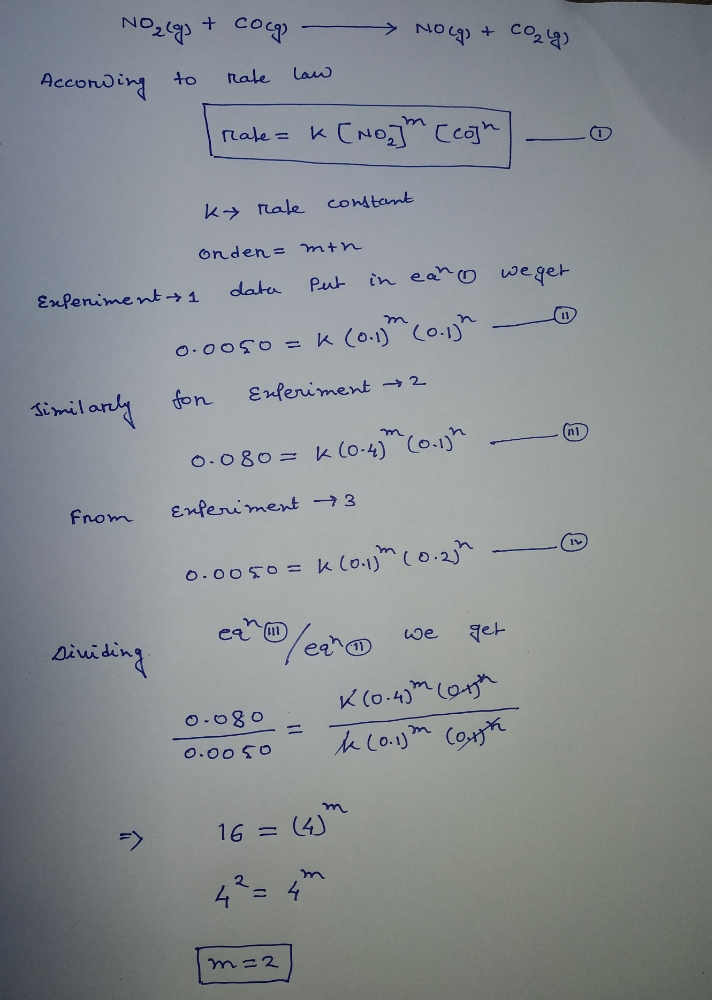 NO₂(g) + CO(g) ⟶ NO(g) + CO₂(g)
According to rate law
rate = K [NO₂]ᵐ [CO]ⁿ —— Ⓘ
K → rate constant
order = m+n
Experiment → 1 data Put in eqⁿ Ⓘ we get
0.0050 = K (0.1)ᵐ (0.1)ⁿ —— (II)
Similarly for Experiment → 2
0.080 = K (0.4)ᵐ (0.1)ⁿ —— (III)
From Experiment → 3
0.0050 = K (0.1)ᵐ (0.2)ⁿ —— (IV)
Dividing eqⁿ (III) / eqⁿ (II) we get
0.080 / 0.0050 = K (0.4)ᵐ (0.1)ⁿ / K (0.1)ᵐ (0.1)ⁿ
⇒ 16 = (4)ᵐ
4² = 4ᵐ
m = 2